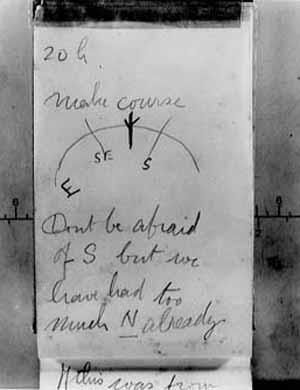 20 h.
make course
SE S
E
Dont be afraid
of S but we
have had too
much N already.
this was from